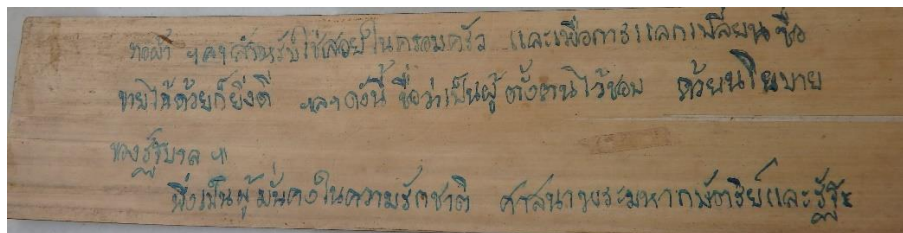 ทอผ้า ฯลฯ สำหรับใช้สอยในครอบครัว และเพื่อการแลกเปลี่ยน ซื้อ
ขายได้ด้วยก็ยิ่งดี ฯลฯ ดังนี้ ชื่อว่าเป็นผู้ ตั้งตนไว้ชอบ ด้วยนโยบาย
ของรัฐบาล ฯ
พึงเป็นผู้มั่นคงในความรักชาติ ศาสนา พระมหากษัตริย์และรัฐะ